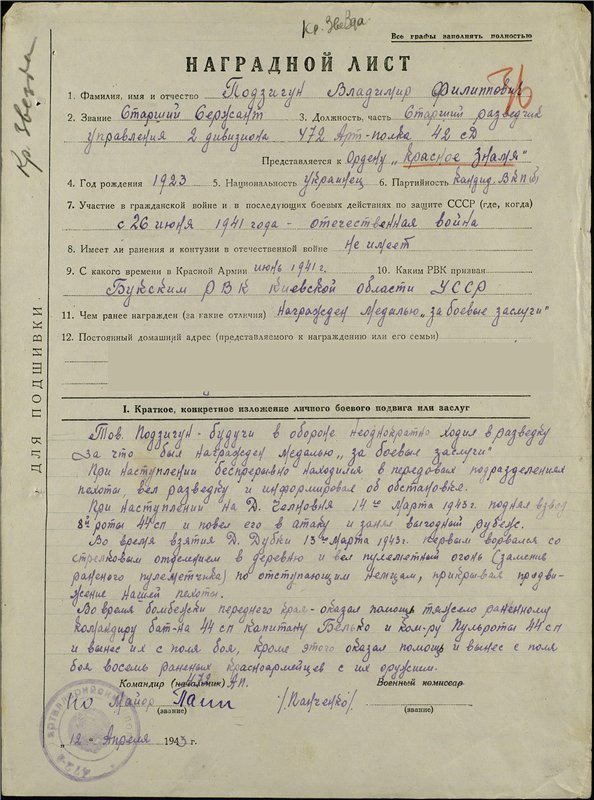 Кр. Звезда.
Все графы заполнять полностью
Кр. Звезда
НАГРАДНОЙ ЛИСТ
1. Фамилия, имя и отчество Подзигун Владимир Филиппович
2. Звание Старший Сержант 3. Должность, часть Старший разведчик
управления 2 дивизиона 472 Арт-полка 42 СД
Представляется к Ордену „Красное Знамя"
4. Год рождения 1923 5. Национальность Украинец 6. Партийность Кандид. ВКП(б)
7. Участие в гражданской войне и в последующих боевых действиях по защите СССР (где, когда)
с 26 июня 1941 года - отечественная война
8. Имеет ли ранения и контузии в отечественной войне Не имеет
9. С какого времени в Красной Армии июнь 1941 г. 10. Каким РВК призван
Букским РВК Киевской области УССР
11. Чем ранее награжден (за какие отличия) Награжден Медалью „за боевые заслуги"
12. Постоянный домашний адрес (представляемого к награждению или его семьи)
ДЛЯ ПОДШИВКИ
I. Краткое, конкретное изложение личного боевого подвига или заслуг
Тов. Подзигун - будучи в обороне неоднократно ходил в разведку
за что был награжден медалью „за боевые заслуги"
При наступлении беспрерывно находился в передовых подразделениях
пехоты, вел разведку и информировал об обстановке.
При наступлении на Д. Челновня 14го Марта 1943г. поднял взвод
8й роты 44 сп и повел его в атаку и занял выгодный рубеж.
Во время взятия Д. Дубки 13го Марта 1943г. первым ворвался со
стрелковым отделением в деревню и вел пулеметный огонь (заменив
раненого пулеметчика) по отступающим немцам, прикрывая продви-
жение нашей пехоты.
Во время бомбежки переднего края - оказал помощь тяжело раненному
командиру бат-на 44 сп капитану Белько и ком-ру пульроты 44 сп
и вынес их с поля боя, кроме этого оказал помощь и вынес с поля
боя восемь раненых красноармейцев с их оружием.
Командир (начальник) 472 АП. Военный комиссар
Майор /Панченко/
(звание) (звание)
„12" Апреля 1943 г.